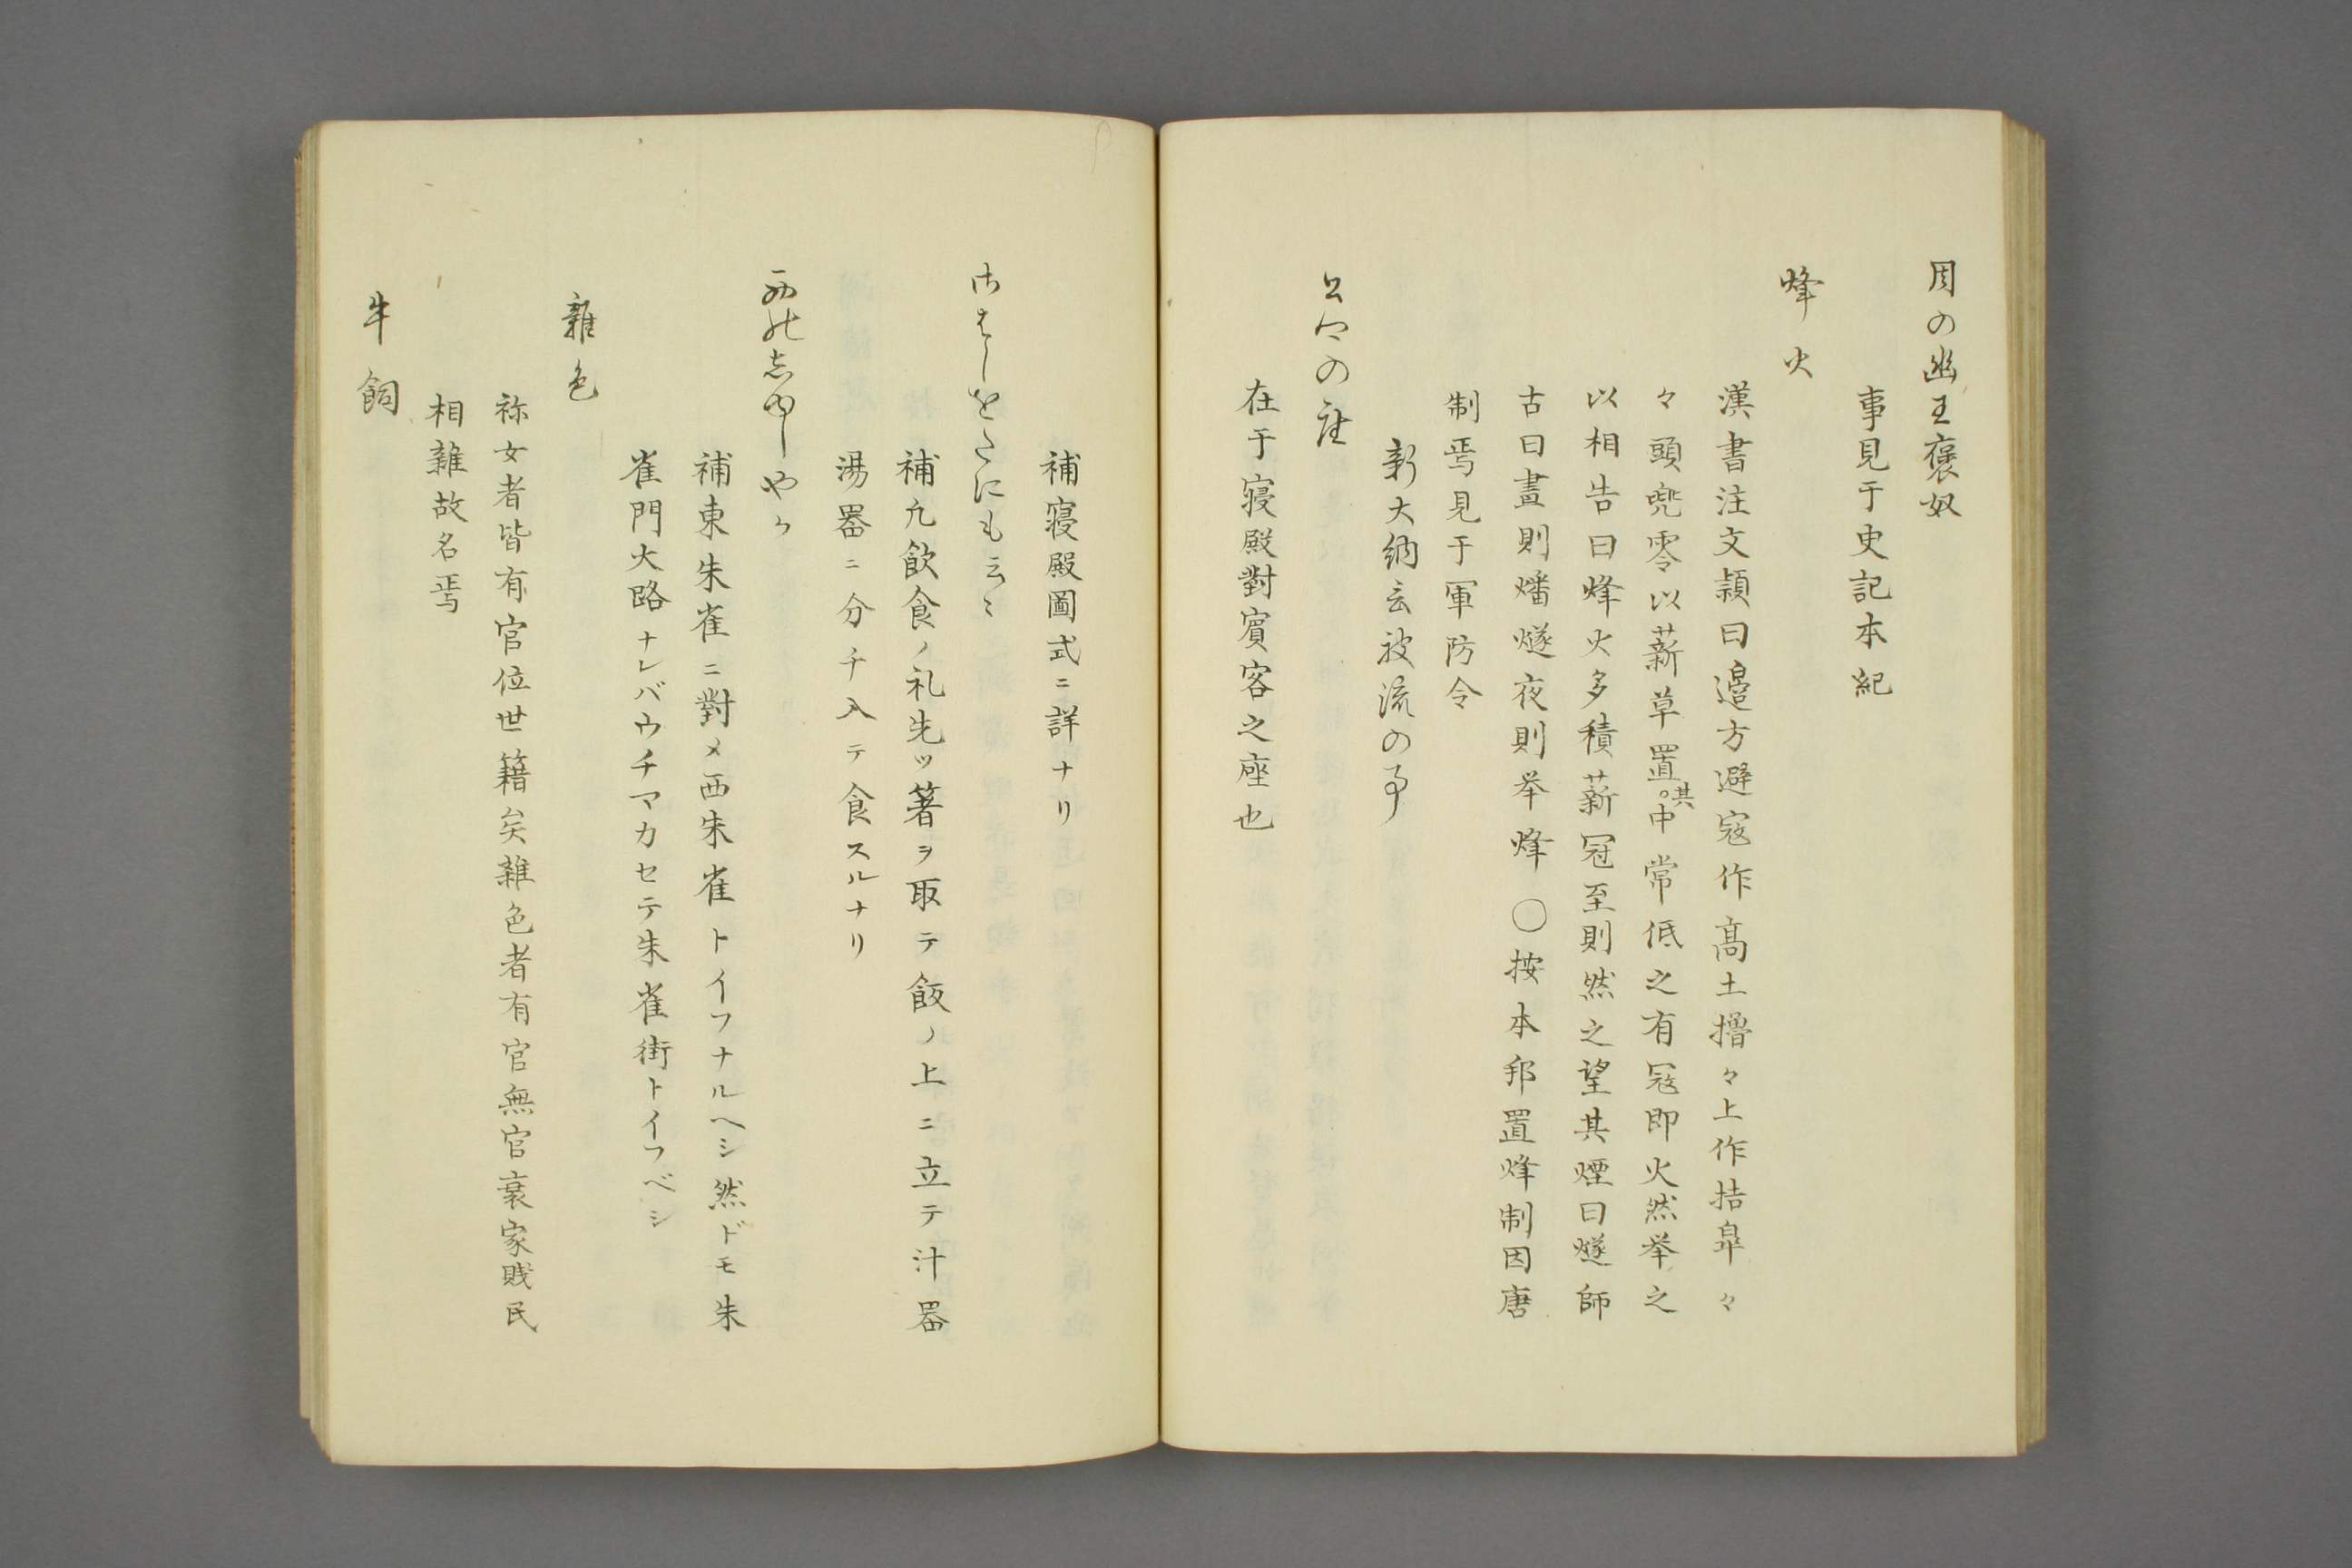 周の幽王褒奴
事見于史記本紀
烽火
漢書注文頴曰邉方避寇作髙土擼々上作桔皐々
々頭兜零以薪草置其中常低之有冦即火然举之
以相告曰烽火多積薪冦至則然之望其煙曰燧師
古曰晝則燔燧夜則举烽○按本邦置烽制因唐
制焉見于軍防令
新大納言被流の事
公卿の座
在于寝殿對賔客之座也
補寝殿圖式ニ詳ナリ
御はしをたにも云〻
補凢飲食ノ礼先ツ箸ヲ取テ飯ノ上ニ立テ汁器
湯器ニ分チ入テ食スルナリ
西の志ゆしやか
補東朱雀ニ對メ西朱雀トイフナルヘシ然ドモ朱
雀門大路ナレバウチマカセテ朱雀街トイフベシ
雜色
祢女者皆有官位世籍矣雜色者有官無官衰家賎民
相雜故名焉
牛飼